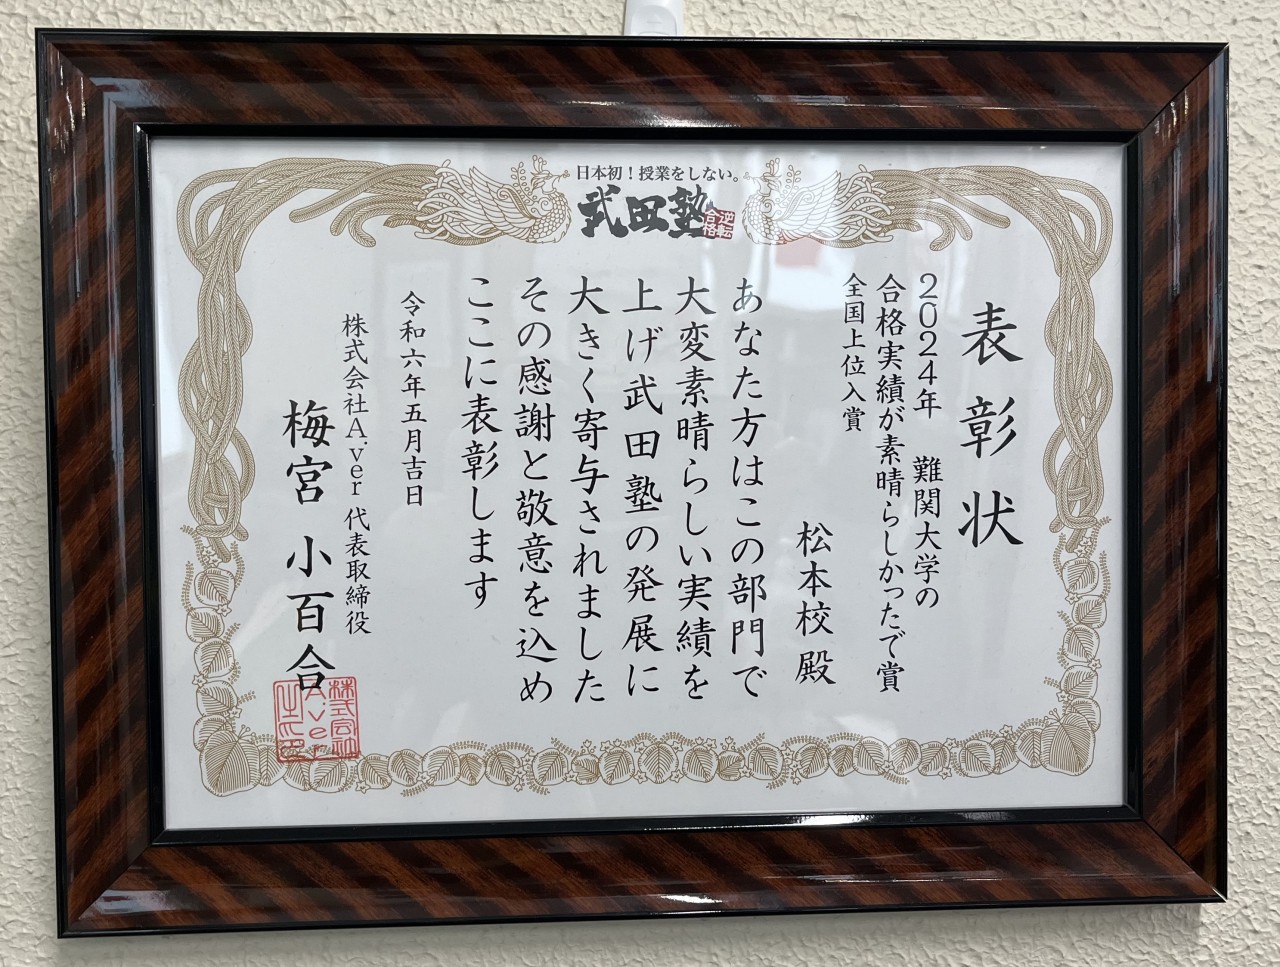 日本初！授業をしない。
武田塾
逆転
合格
表彰状
2024年　難関大学の
合格実績が素晴らしかったで賞
全国上位入賞
松本校殿
あなた方はこの部門で
大変素晴らしい実績を
上げ武田塾の発展に
大きく寄与されました
その感謝と敬意を込め
ここに表彰します
令和六年五月吉日
株式会社A.ver 代表取締役
梅宮 小百合
株式会社
A.ver
之印